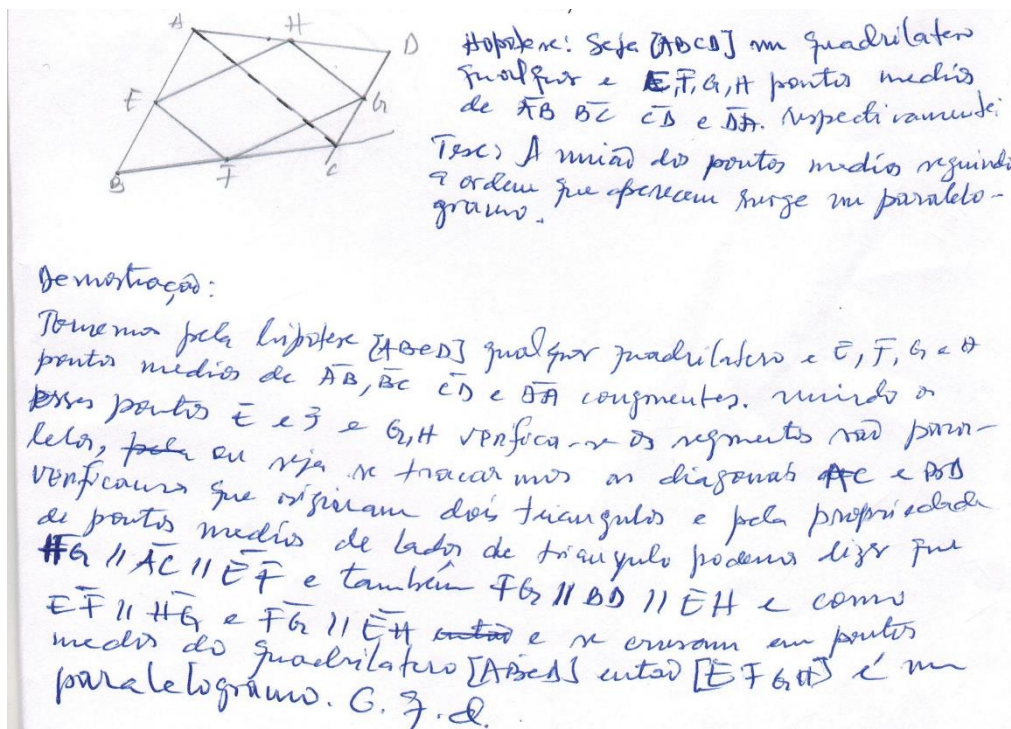 A H D
E G
B F C
Hopotese: Seja [ABCD] um quadrilatero
qualquer e E, F, G, H pontos medios
de AB BC CD e DA. respectivamente.
Tese: A união dos pontos medios seguindo
a ordem que aparecem surge um paralelo-
gramo.
Demostração:
Tomemos pela hipotese [ABCD] qualquer quadrilatero e E, F, G e H
pontos medios de AB, BC CD e DA congruentes. unindo os
esses pontos E e F e G, H verifica-se os segmentos são para-
lelos, ou seja se tracarmos as diagonais AC e BD
verificamos que originam dois triangulos e pela propriedade
de pontos medios de lados de triangulo podemos dizer que
HG // AC // EF e também FG // BD // EH e como
EF // HG e FG // EH e se crusam em pontos
medios do quadrilatero [ABCD] entao [EFGH] é um
paralelogramo. C. q. d.